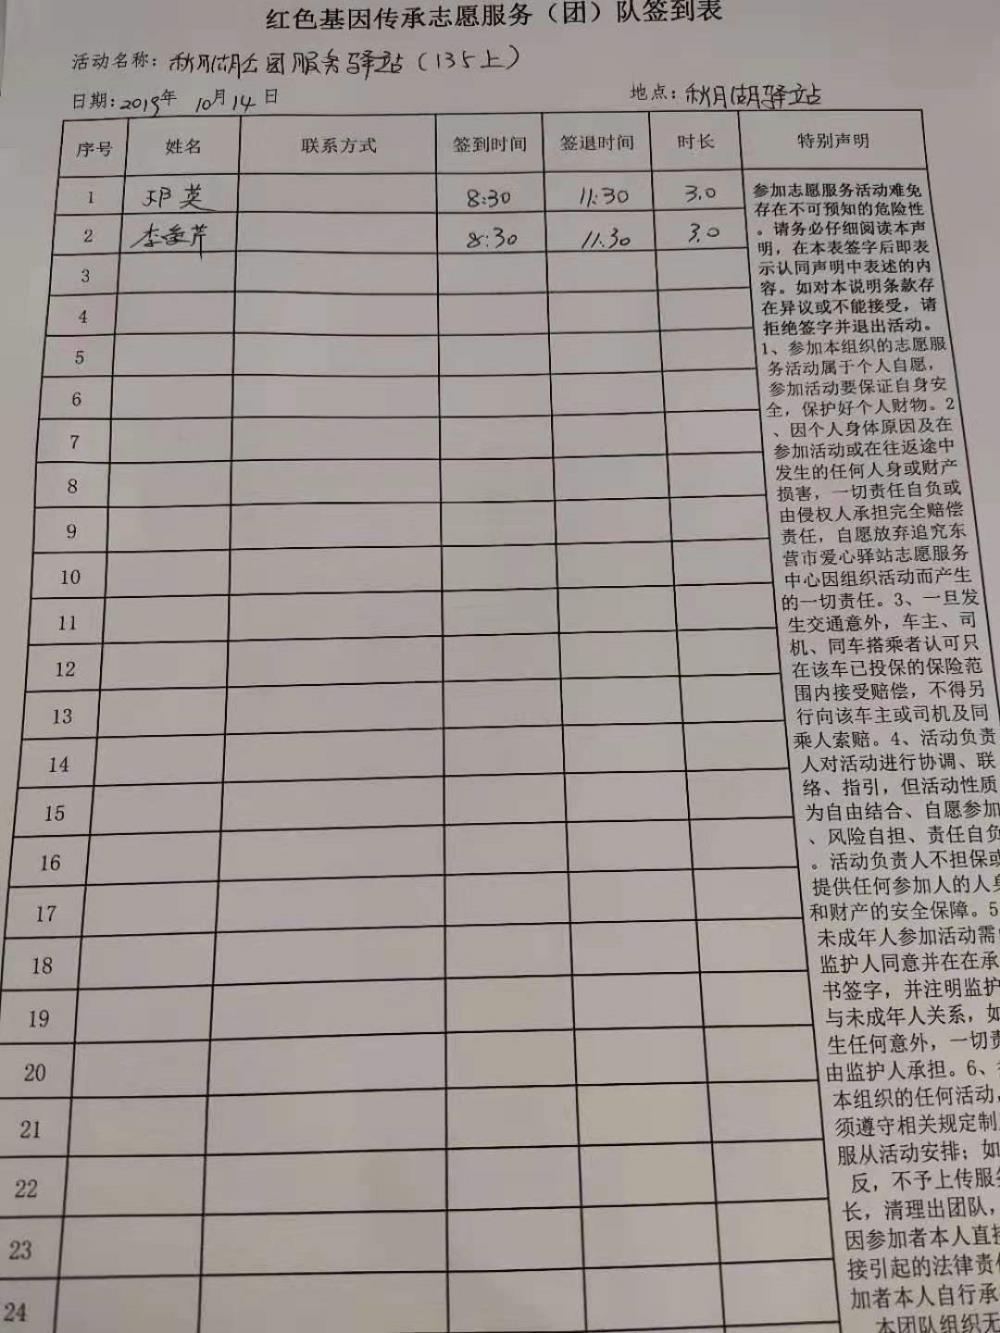 红色基因传承志愿服务（团）队签到表
活动名称：秋月湖公园服务驿站（135上）
日期：2019年 10月14日 地点：秋月湖驿站
序号 姓名 联系方式 签到时间 签退时间 时长 特别声明
1 邱英 8:30 11:30 3.0
2 李重芹 8:30 11:30 3.0
3
4
5
6
7
8
9
10
11
12
13
14
15
16
17
18
19
20
21
22
23
24
参加志愿服务活动难免
存在不可预知的危险性
。请务必仔细阅读本声
明，在本表签字后即表
示认同声明中表述的内
容。如对本说明条款存
在异议或不能接受，请
拒绝签字并退出活动。
1、参加本组织的志愿服
务活动属于个人自愿，
参加活动要保证自身安
全，保护好个人财物。2
、因个人身体原因及在
参加活动或在往返途中
发生的任何人身或财产
损害，一切责任自负或
由侵权人承担完全赔偿
责任，自愿放弃追究东
营市爱心驿站志愿服务
中心因组织活动而产生
的一切责任。3、一旦发
生交通意外，车主、司
机、同车搭乘者认可只
在该车已投保的保险范
围内接受赔偿，不得另
行向该车主或司机及同
乘人索赔。4、活动负责
人对活动进行协调、联
络、指引，但活动性质
为自由结合、自愿参加
、风险自担、责任自负
。活动负责人不担保或
提供任何参加人的人身
和财产的安全保障。5
未成年人参加活动需
监护人同意并在在承
书签字，并注明监护
与未成年人关系，如
生任何意外，一切责
由监护人承担。6、
本组织的任何活动，
须遵守相关规定制
服从活动安排；如
反，不予上传服务
长，清理出团队，
因参加者本人直接
接引起的法律责任
加者本人自行承
本团队组织无